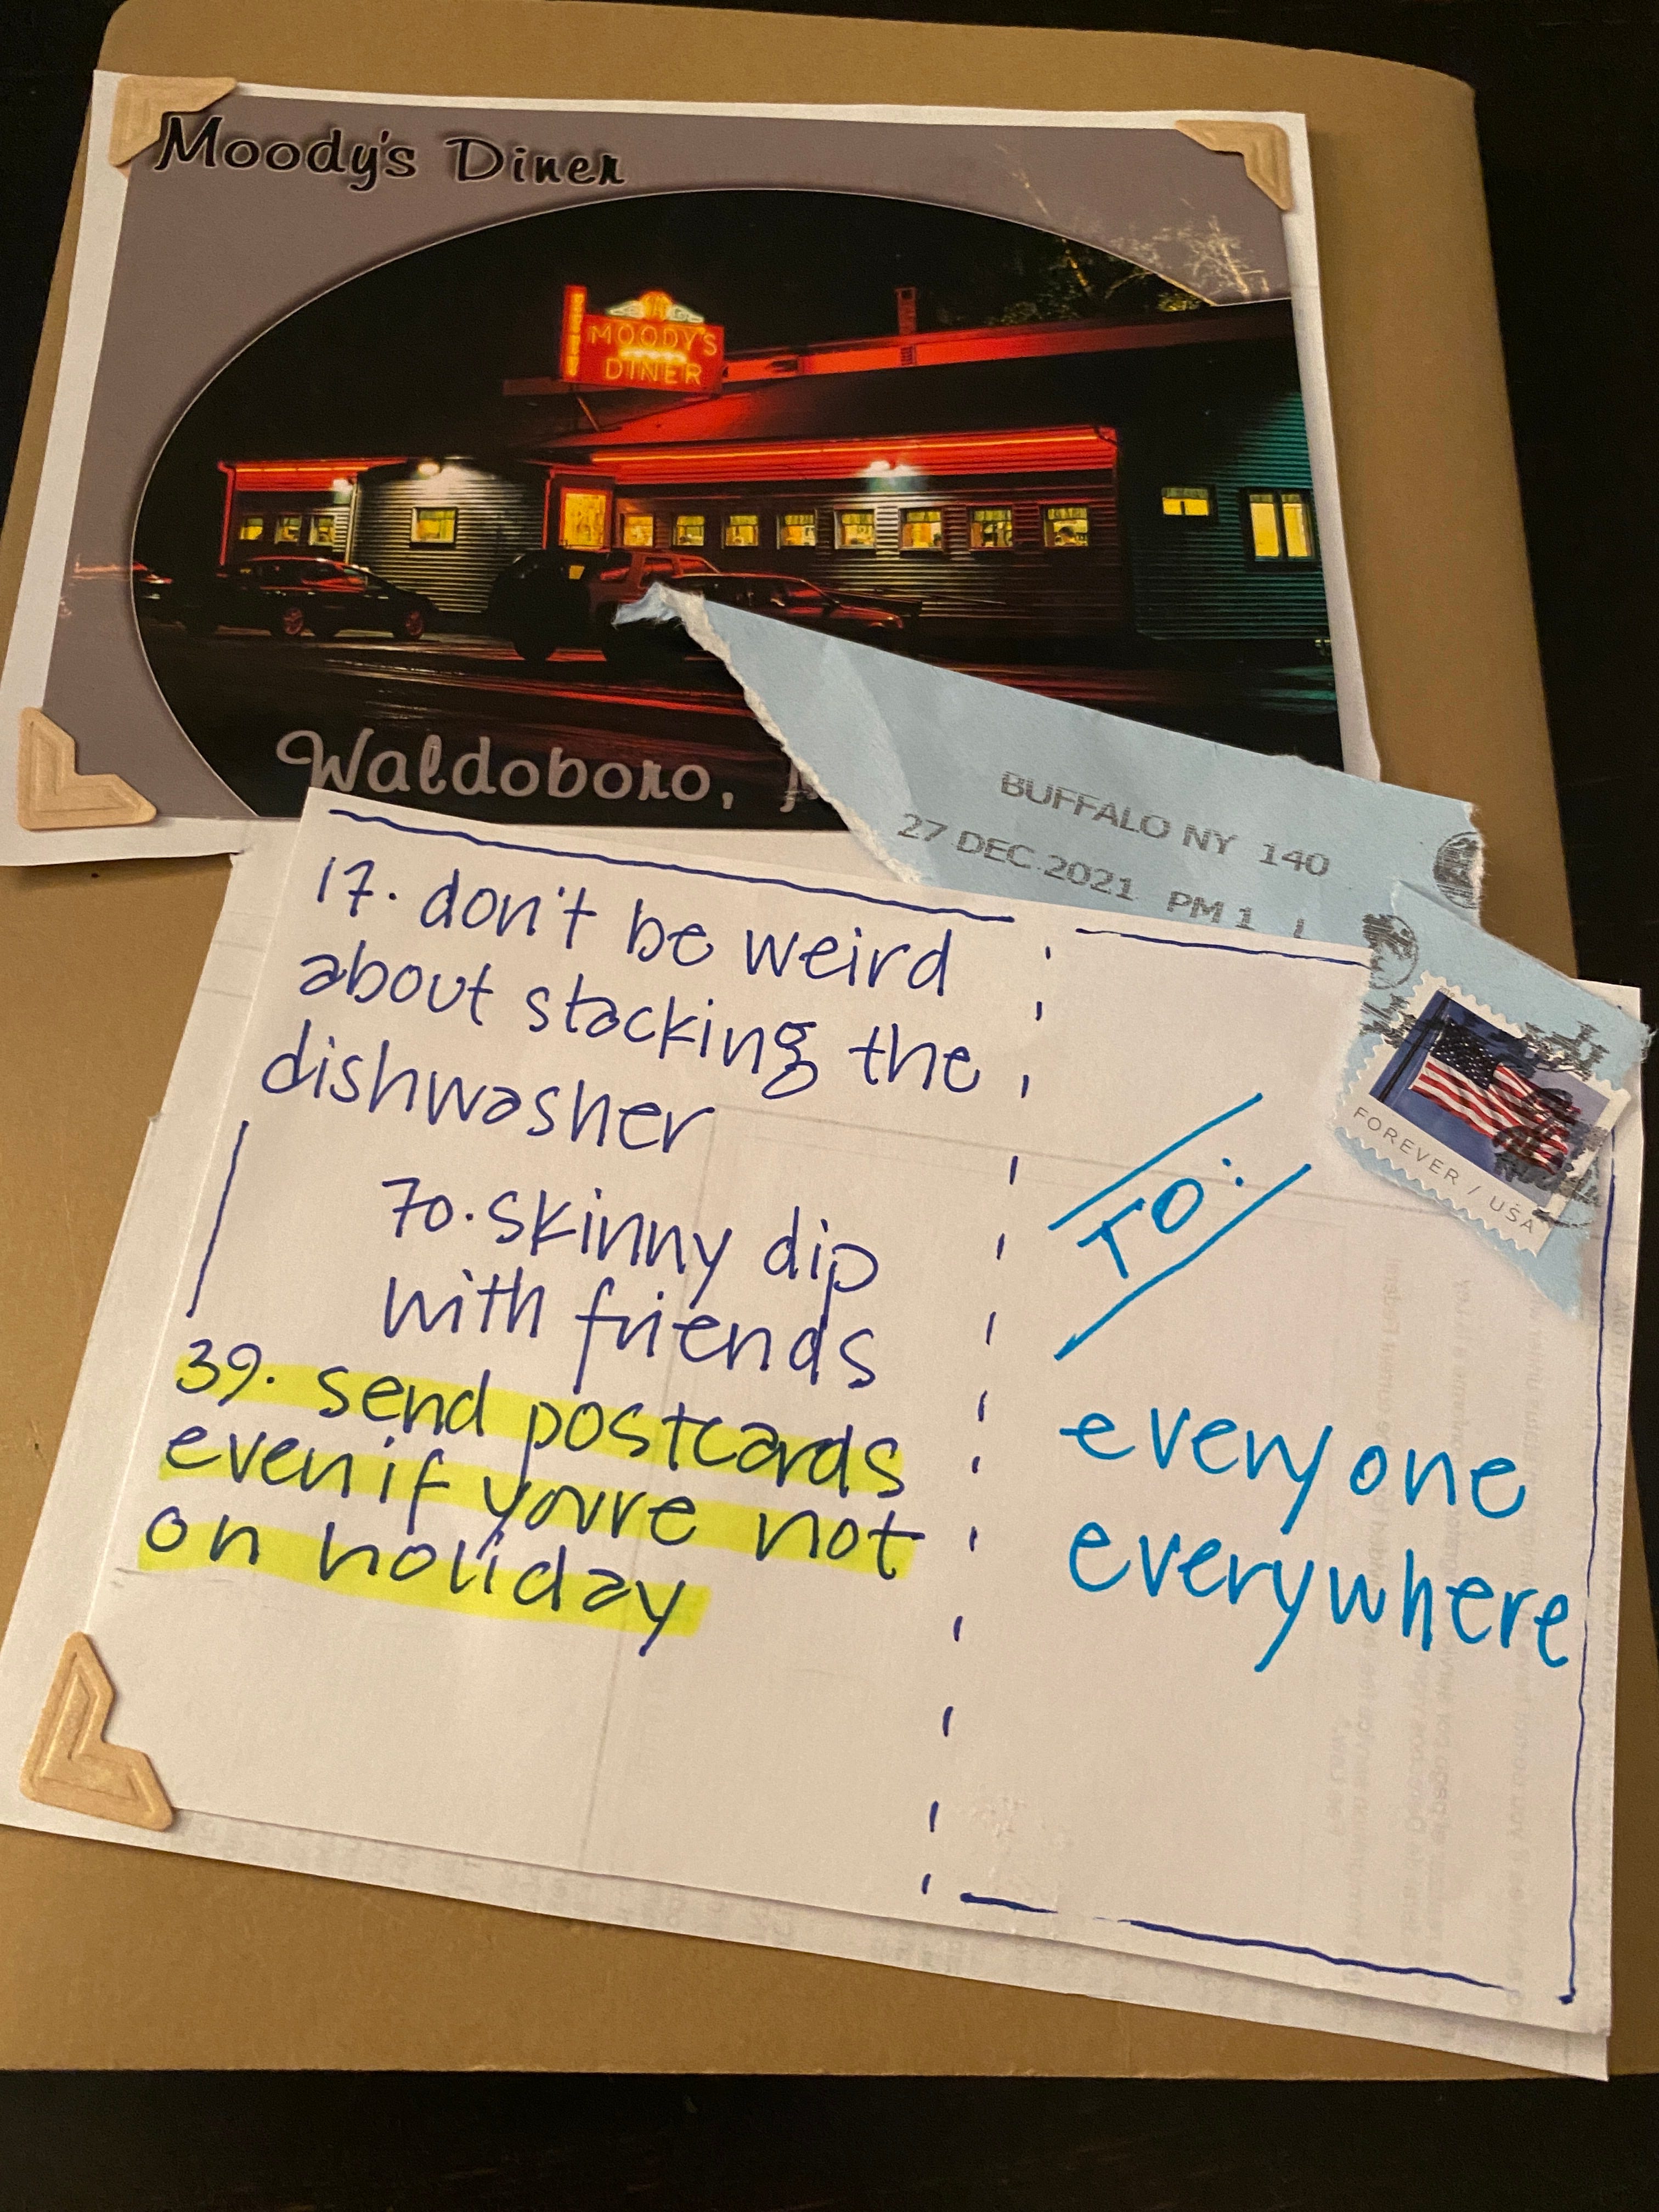 Moody's Diner
MOODY'S
DINER
Waldoboro,
BUFFALO NY 140
27 DEC 2021 PM 1 L
17. don't be weird
about stacking the
dishwasher
70. skinny dip
with friends
39. send postcards
even if you're not
on holiday
TO:
everyone
everywhere
FOREVER / USA